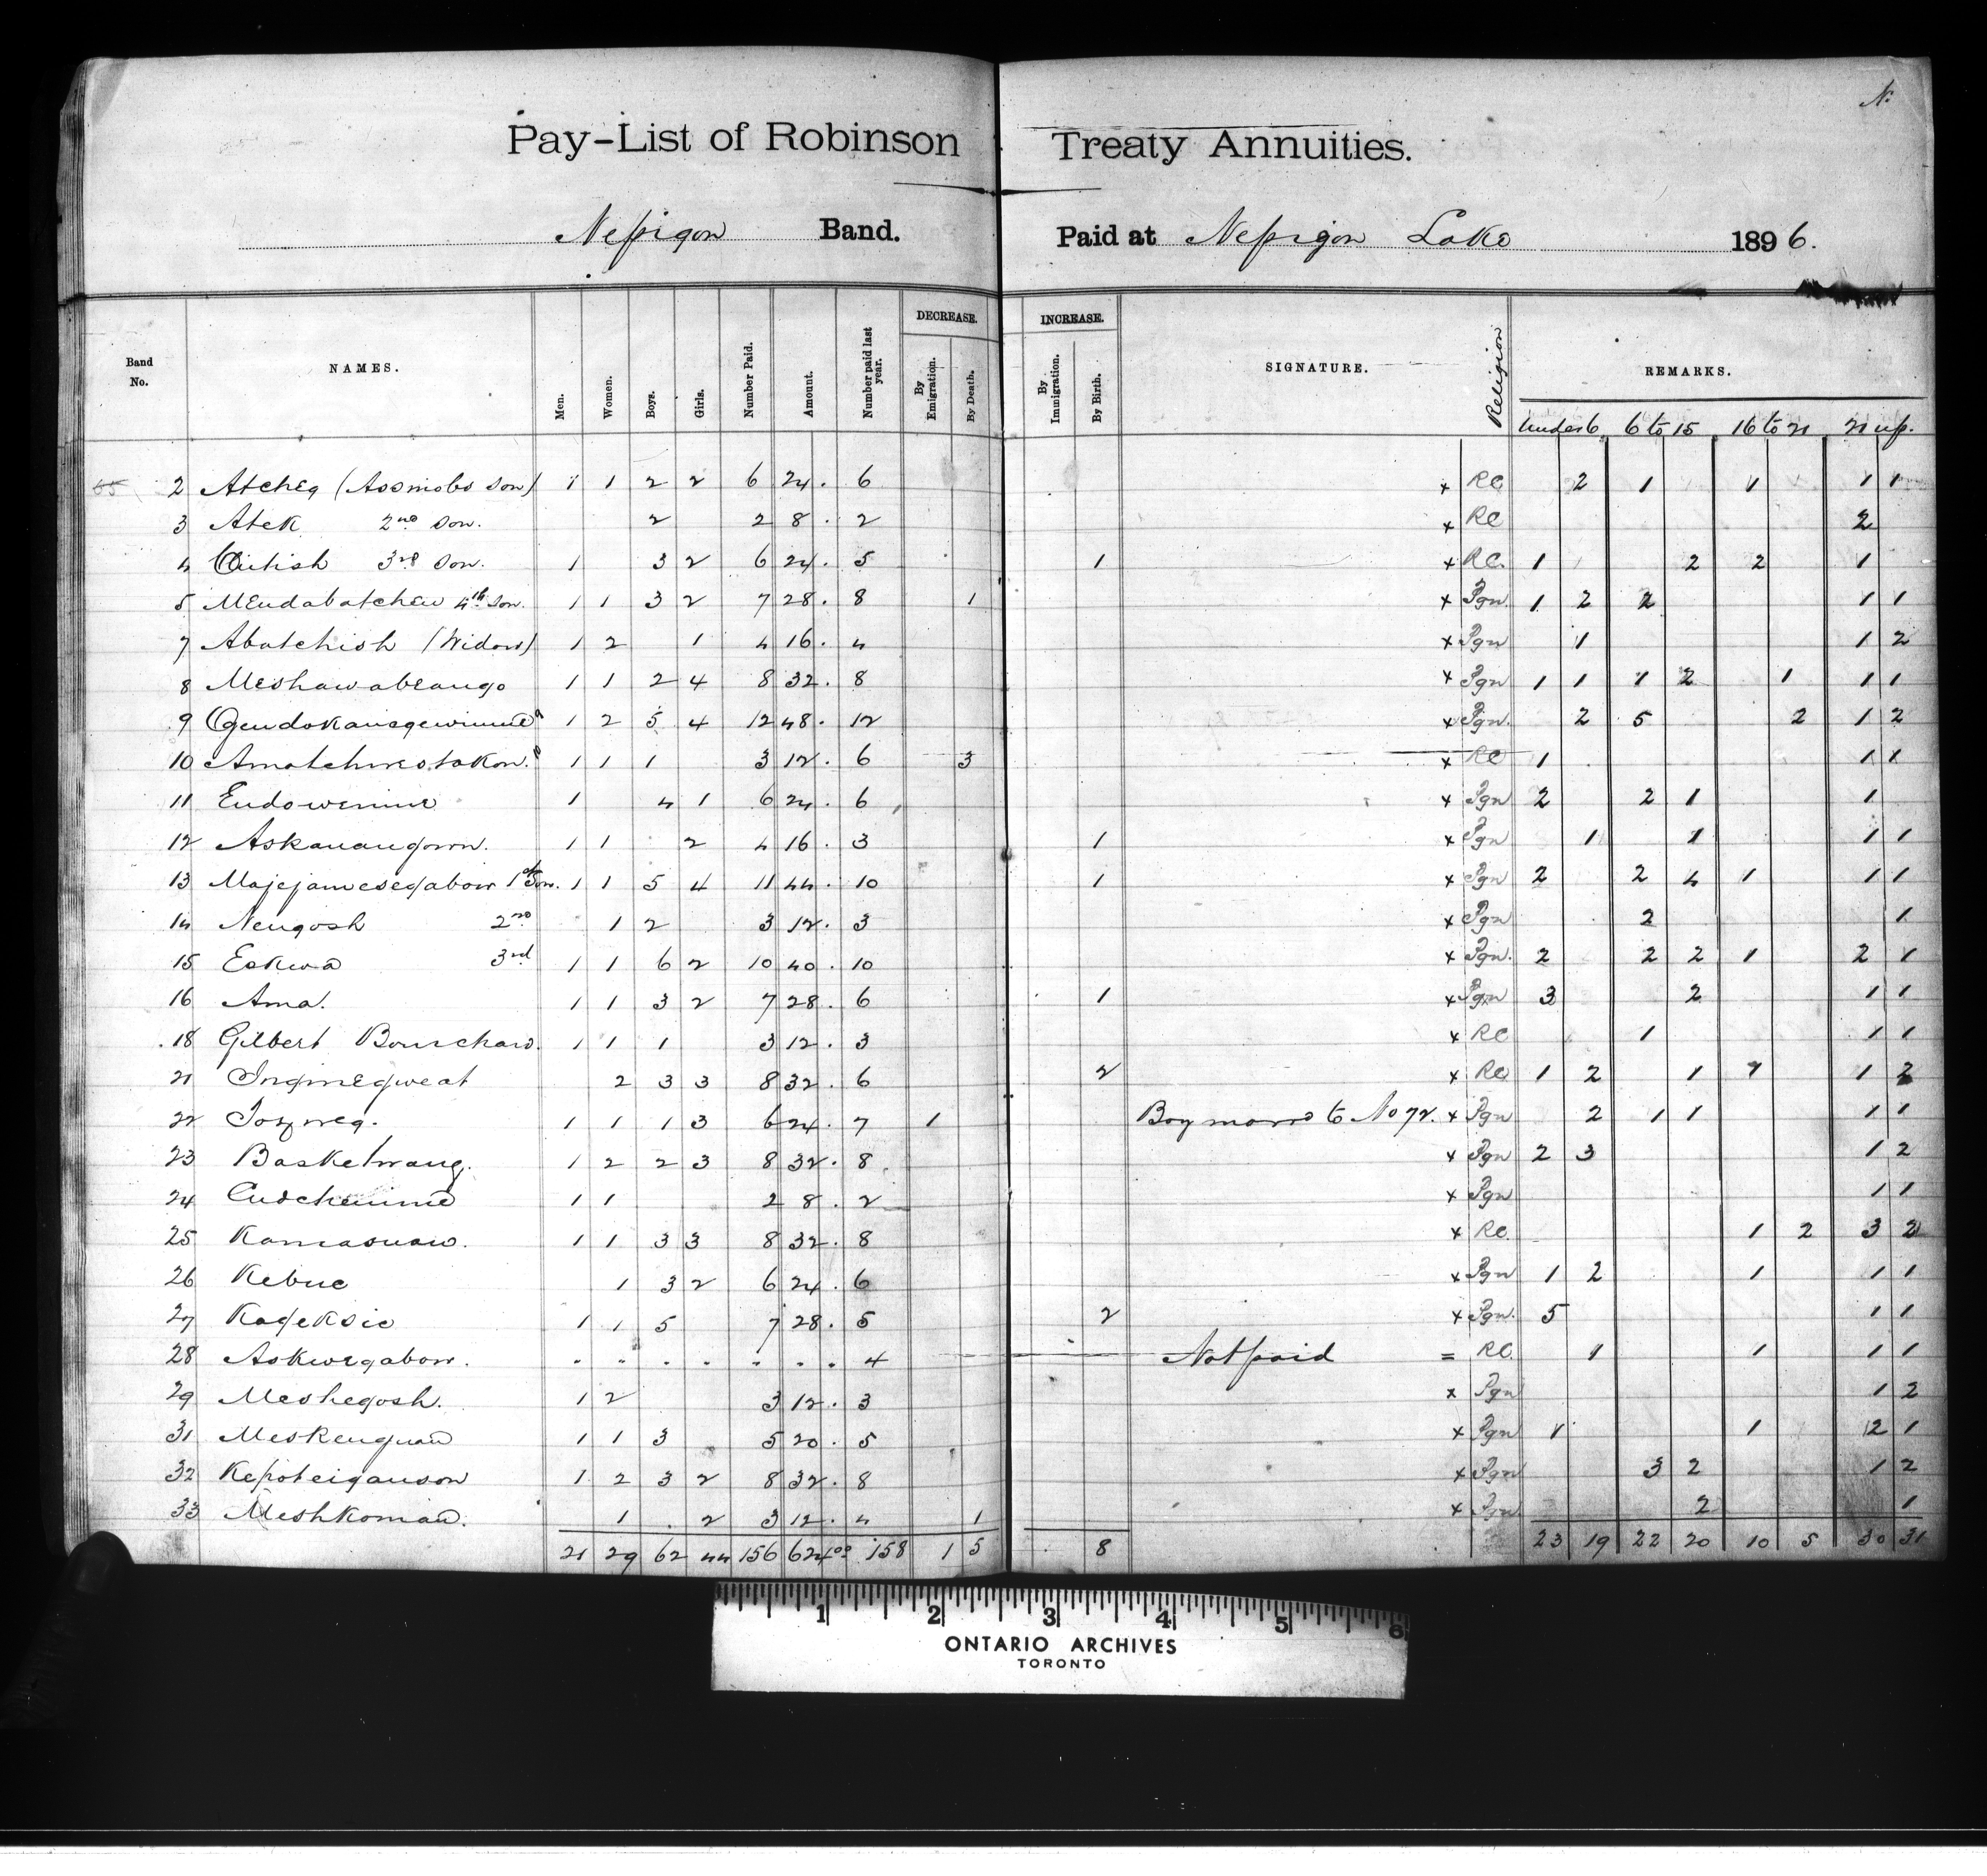 N.
Pay-List of Robinson Treaty Annuities.
Nepigon Band. Paid at Nepigon Lake 1896.
Band No. NAMES. Men. Women. Boys. Girls. Number Paid. Amount. Number paid last year. DECREASE. By Emigration. By Death. INCREASE. By Immigration. By Birth. SIGNATURE. Religion REMARKS.
Under 6 6 to 15 16 to 21 21 up.
2 Atcheg (Assmobs son) 1 1 2 2 6 24. 6 x RC 2 1 1 1 1
3 Atek 2nd son. 2 2 8. 2 x RC 2
4 3rd son. 1 3 2 6 24. 5 1 x RC. 1 2 2 1
5 Mendabatchew 4th son. 1 1 3 2 7 28. 8 1 x Pgn. 1 2 2 1 1
7 Abatchish (Widow) 1 2 1 4 16. 4 x Pgn 1 1 2
8 Meshawabeango 1 1 2 4 8 32. 8 x Pgn 1 1 1 2 1 1 1
9 Gendokanagewinine 1 2 5 4 12 48. 12 x Pgn. 2 5 2 1 2
10 Amatchwestakon. 1 1 1 3 12. 6 3 x RC 1 1 1
11 Endowinine 1 4 1 6 24. 6 x Pgn 2 2 1 1
12 Askanangown. 1 1 2 4 16. 3 1 x Pgn 1 1 1 1
13 Majejamesegabow 1st Son. 1 1 5 4 11 44. 10 1 x Pgn 2 2 4 1 1 1
14 Nengosh 2nd 1 2 3 12. 3 x Pgn 2 1
15 Eskwa 3rd 1 1 6 2 10 40. 10 x Pgn. 2 2 2 1 2 1
16 Ama. 1 1 3 2 7 28. 6 1 x Pgn 3 2 1 1
18 Gilbert Bourchard. 1 1 1 3 12. 3 x RC 1 1 1
21 Inginegweat 2 3 3 8 32. 6 2 x RC 1 2 1 1 1 2
22 1 1 1 3 6 24. 7 1 Boy moved to No 72. x Pgn 2 1 1 1 1
23 Basketwang. 1 2 2 3 8 32. 8 x Pgn 2 3 1 2
24 1 1 2 8. 2 x Pgn 1 1
25 Kamasuaw. 1 1 3 3 8 32. 8 x RC. 1 2 3 2
26 Kebue 1 3 2 6 24. 6 x Pgn 1 2 1 1 1
27 Kageksic 1 1 5 7 28. 5 2 x Pgn. 5 1 1
28 Askwegabow. . . . . . . . 4 Not paid = RC. 1 1 1 1
29 Meshegosh. 1 2 3 12. 3 x Pgn 1 2
31 Meskenquan 1 1 3 5 20. 5 x Pgn 1 1 2 1
32 Kepoteiganson 1 2 3 2 8 32. 8 x Pgn 3 2 1 2
33 Meshkoman. 1 . 2 3 12. 4 1 x Pgn 2 1
21 29 62 44 156 624.00 158 1 5 8 23 19 22 20 10 5 30 31
1 2 3 4 5 6
ONTARIO ARCHIVES
TORONTO